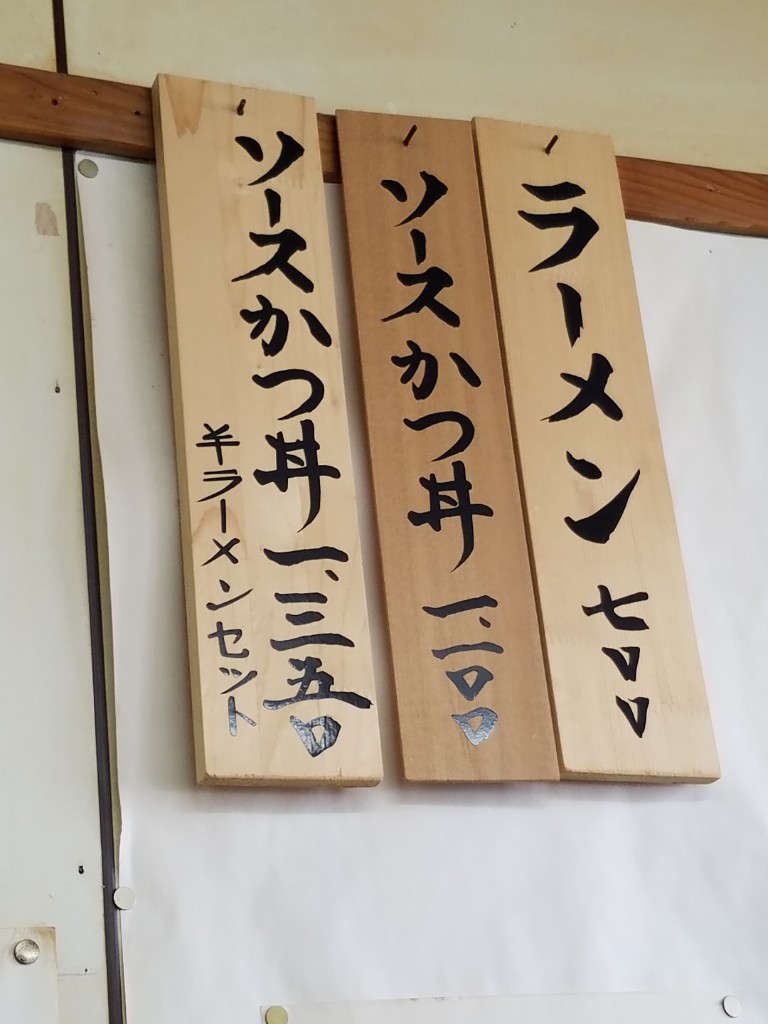 ラーメン 七〇〇
ソースかつ丼 一、一〇〇
ソースかつ丼 一、三五〇
半ラーメンセット